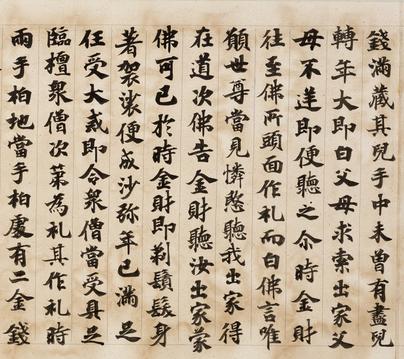 錢滿藏其兒手中未曽有盡兒
轉年大即白父母求索出家父
母不逆即便聽之尒時金財
往至佛所頭面作礼而白佛言唯
願世尊當見憐愍聽我出家得
在道次佛告金財聽汝出家蒙
佛可已於時金財即剃鬚髮身
著袈裟便成沙弥年已滿足
任受大戒即令衆僧當受具足
臨檀衆僧次第為礼其作礼時
兩手拍地當手拍處有二金錢